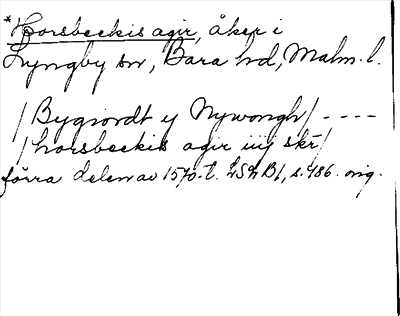 *Horsbeckis agir, åker i
Lyngby sn, Bara hd, Malm. l.
/Bygiordt ej Nywongh/ - - - -
/horsbeckis agir iiij skr/
förra delen av 1570-t. LSÄ B1, s. 486. orig.